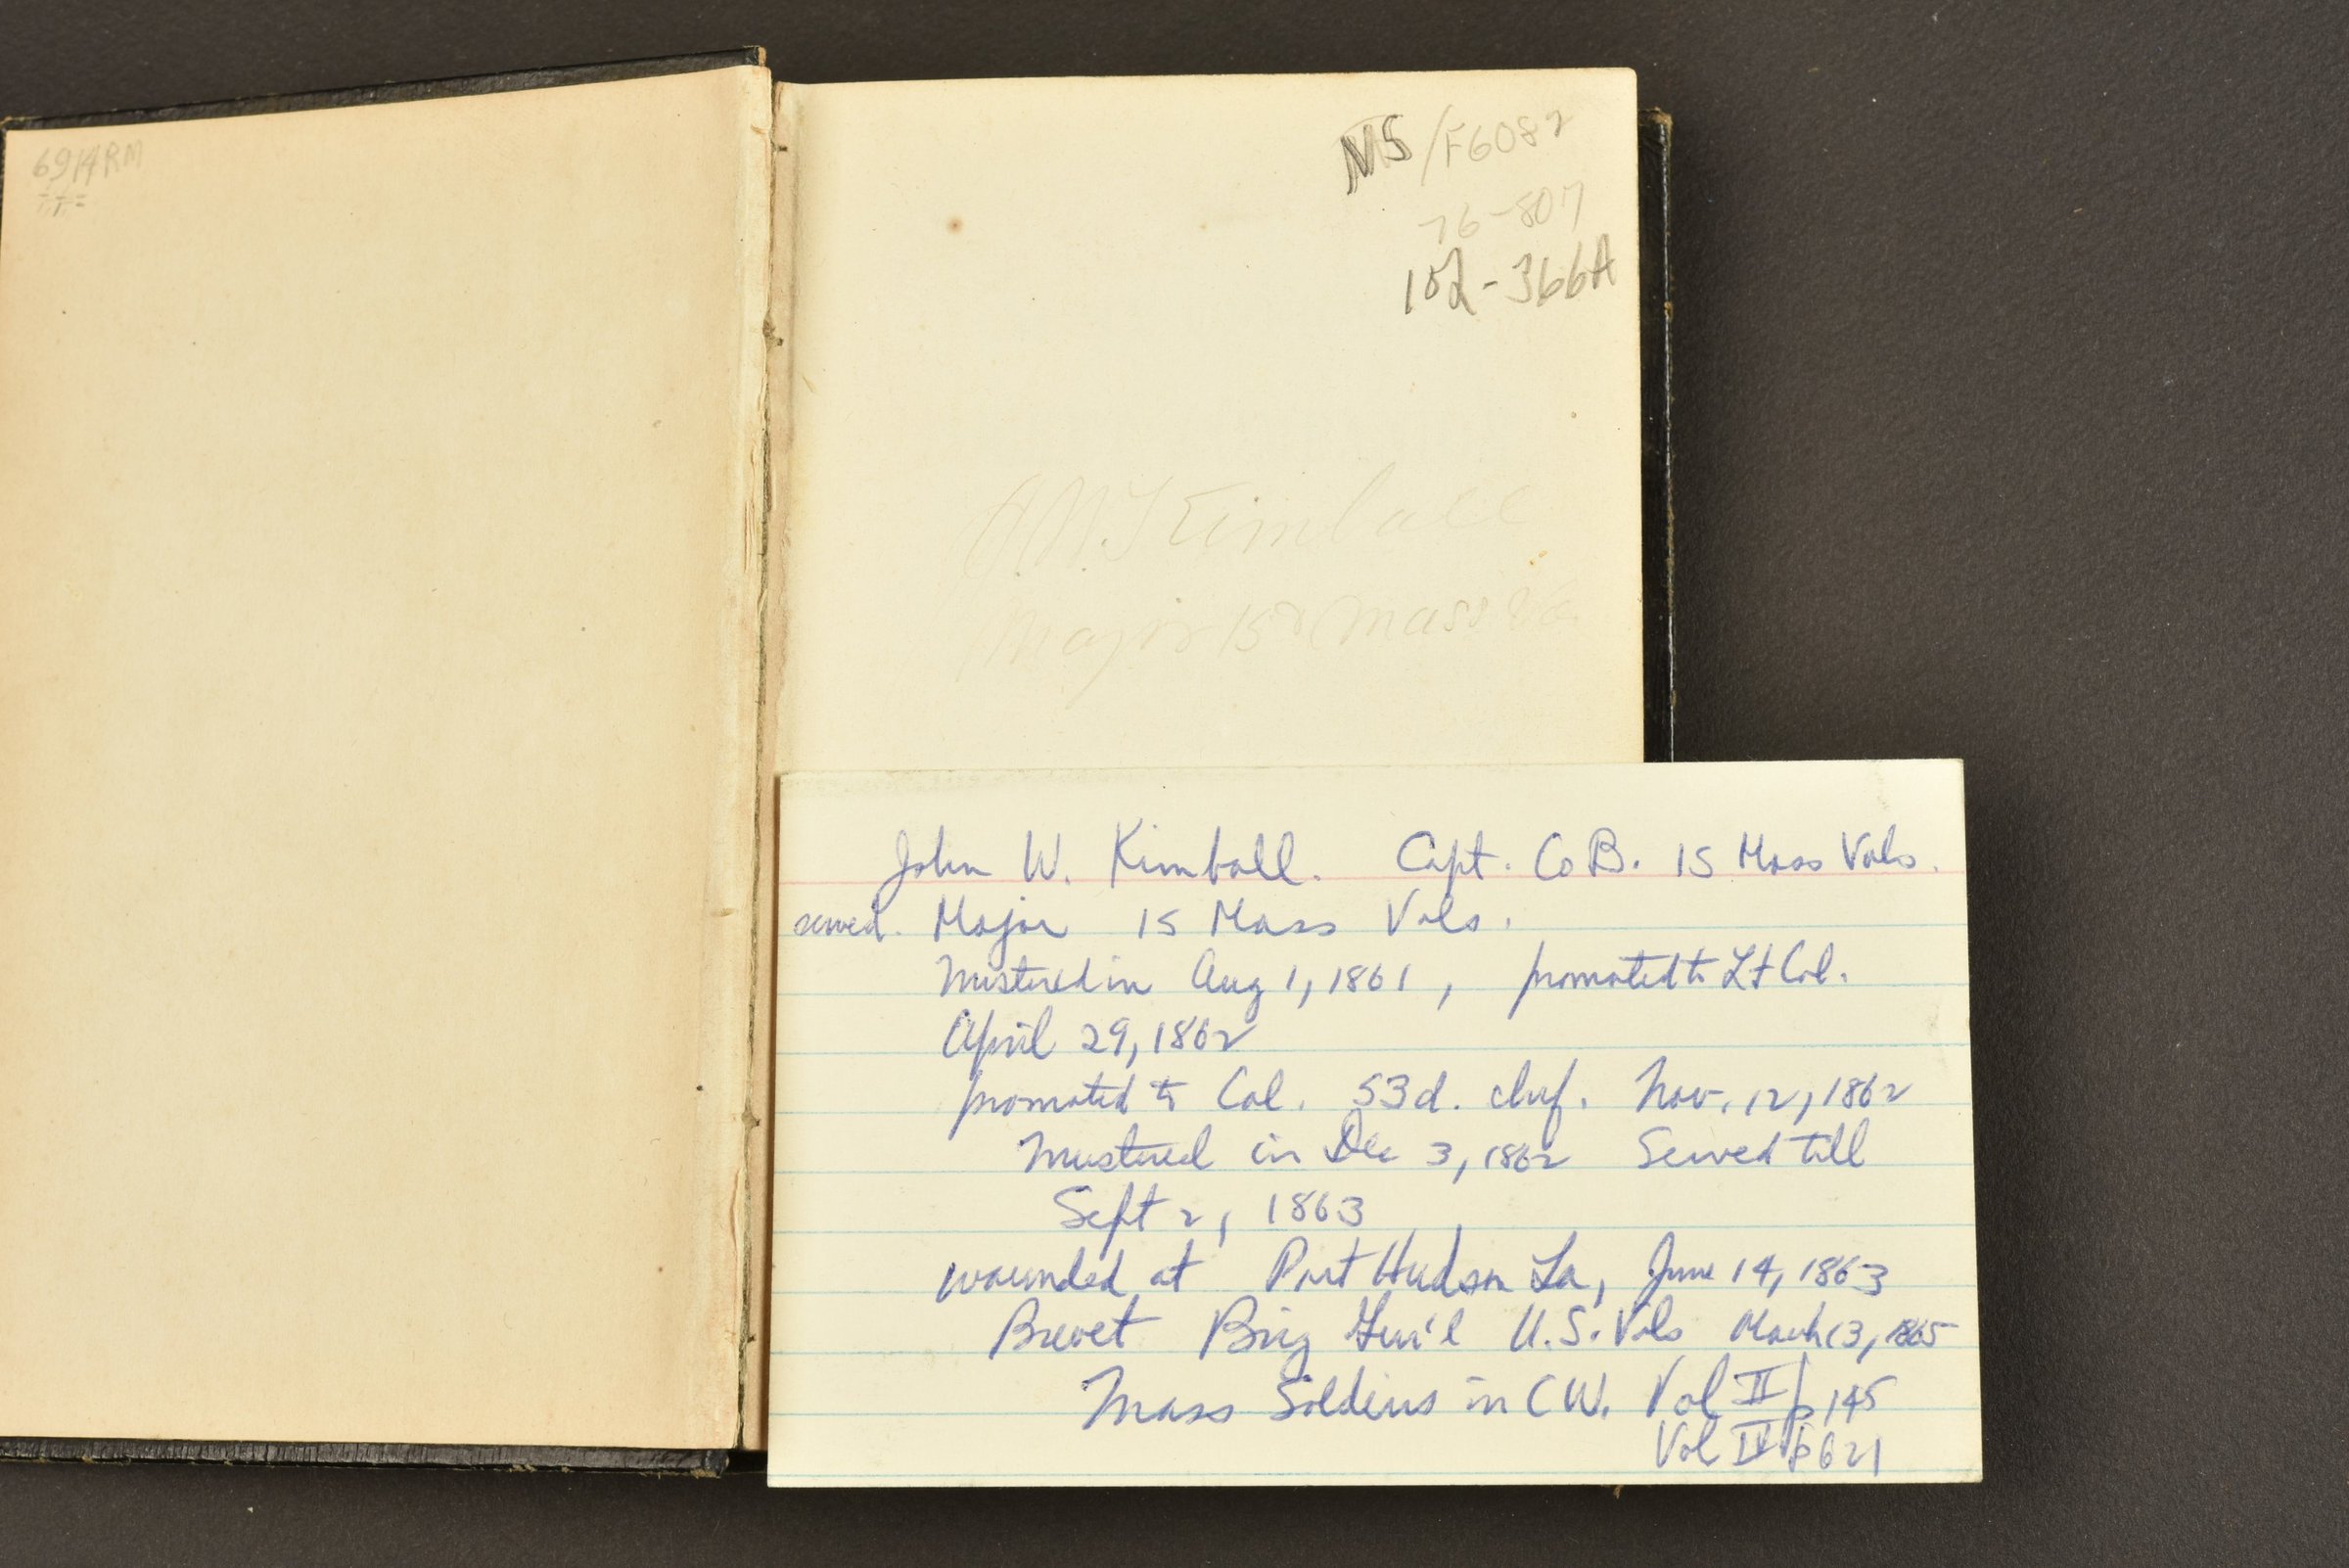 6914RM
MS /F6082
76-807
102-366A
Kimball
Major 15 Mass
John W. Kimball. Capt. Co B. 15 Mass Vols.
served. Major 15 Mass Vols.
Mustered in Aug 1, 1861, promoted to Lt Col.
April 29, 1862
promoted to Col. 53d. Nov. 12, 1862
Mustered in Dec 3, 1862 Served till
Sept 2, 1863
wounded at Port Hudson La, June 14, 1863
Brevet Brig Gen'l U.S. Vols March 13, 1865
Mass Soldiers in CW. Vol II p 145
Vol IV p 621